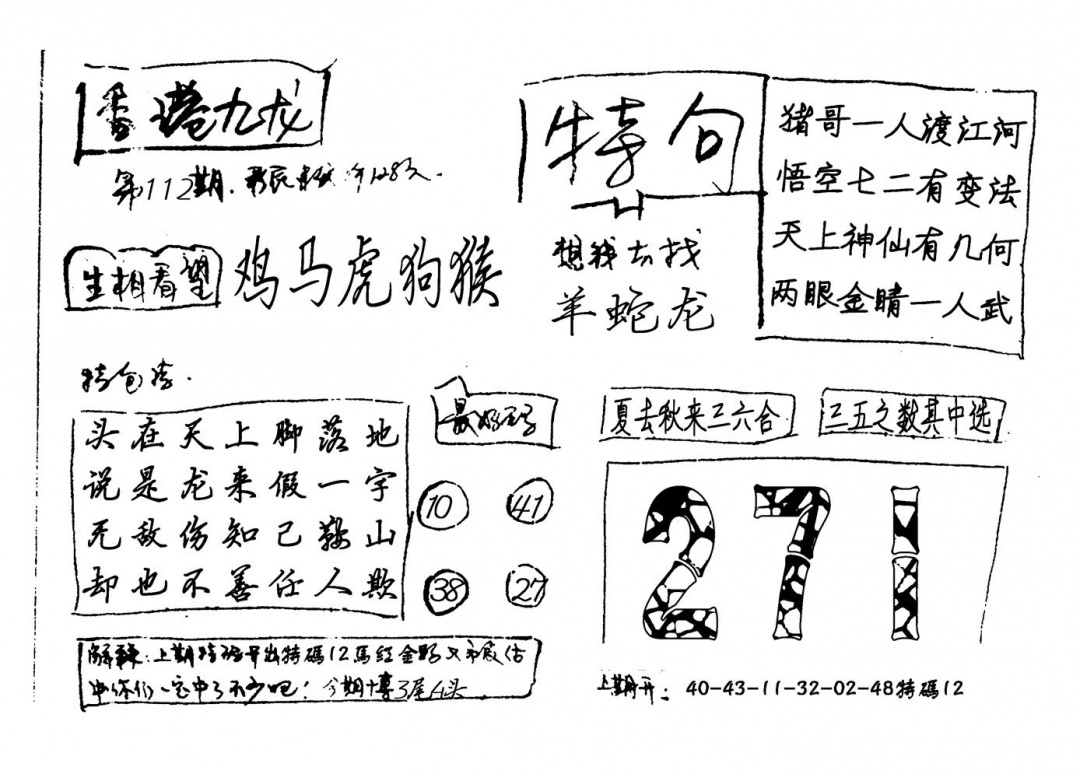 香港九龙
第112期.
生相看望
鸡马虎狗猴
特句
想我去找
羊蛇龙
猪哥一人渡江河
悟空七二有变法
天上神仙有几何
两眼金睛一人武
头在天上脚落地
说是龙来假一字
无敌伤知己鞍山
却也不善任人欺
10 41
38 27
夏去秋来二六合
三五之数其中选
271
解释:上期特码开出特碼12馬红
中你们一定中了不少吧!今期博3尾4头
上期开: 40-43-11-32-02-48特碼12